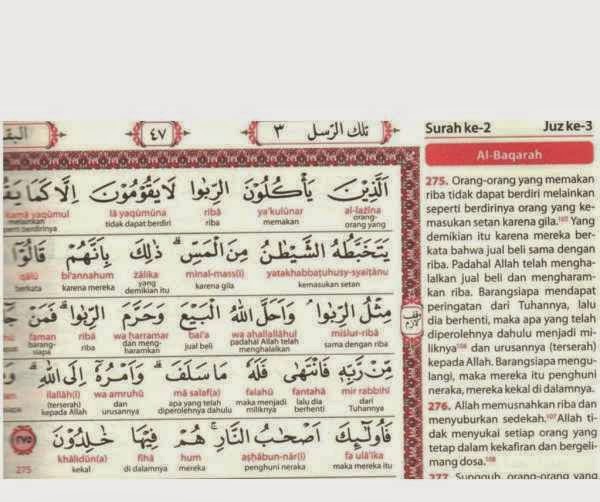 البقر
٤٧
تلك الرّسل ٣
Surah ke-2 Juz ke-3
Al-Baqarah
اَلَّذِيْنَ يَأْكُلُوْنَ الرِّبٰوا لَا يَقُوْمُوْنَ اِلَّا كَمَا
al-lażīna ya'kulūnar ribā lā yaqūmūna kamā yaqūmul
orang-orang yang memakan riba tidak dapat berdiri melainkan seperti berdirinya
يَتَخَبَّطُهُ الشَّيْطٰنُ مِنَ الْمَسِّۗ ذٰلِكَ بِاَنَّهُمْ قَالُوْٓا
yatakhabbaṭuhusy-syaiṭānu minal-mass(i) żālika bi'annahum qālū
kemasukan setan karena gila yang demikian itu karena mereka berkata
مِثْلُ الرِّبٰواۘ وَاَحَلَّ اللّٰهُ الْبَيْعَ وَحَرَّمَ الرِّبٰواۗ فَمَنْ
miślur-ribā wa aḥallallāhul bai'a wa ḥarramar ribā faman
sama dengan riba padahal Allah telah menghalalkan jual beli dan mengharamkan riba barangsiapa
مِّنْ رَّبِّهٖ فَانْتَهٰى فَلَهٗ مَا سَلَفَۗ وَاَمْرُهٗٓ اِلَى اللّٰهِۗ
mir rabbihī fantahā falahū mā salaf(a) wa amruhū ilallāh(i)
dari Tuhannya lalu dia berhenti maka menjadi miliknya apa yang telah diperolehnya dahulu dan urusannya (terserah) kepada Allah
فَاُولٰۤىِٕكَ اَصْحٰبُ النَّارِۚ هُمْ فِيْهَا خٰلِدُوْنَ ٢٧٥
fa ulā'ika aṣḥābun-nār(i) hum fīhā khālidūn(a) 275
maka mereka itu penghuni neraka mereka di dalamnya kekal
وقف لازم
275. Orang-orang yang memakan
riba tidak dapat berdiri melainkan
seperti berdirinya orang yang ke-
masukan setan karena gila.¹⁰⁵ Yang
demikian itu karena mereka ber-
kata bahwa jual beli sama dengan
riba. Padahal Allah telah mengha-
lalkan jual beli dan mengharam-
kan riba. Barangsiapa mendapat
peringatan dari Tuhannya, lalu
dia berhenti, maka apa yang telah
diperolehnya dahulu menjadi mi-
liknya¹⁰⁶ dan urusannya (terserah)
kepada Allah. Barangsiapa mengu-
langi, maka mereka itu penghuni
neraka, mereka kekal di dalamnya.
276. Allah memusnahkan riba dan
menyuburkan sedekah.¹⁰⁷ Allah ti-
dak menyukai setiap orang yang
tetap dalam kekafiran dan bergeli-
mang dosa.¹⁰⁸
277. Sungguh, orang-orang yang